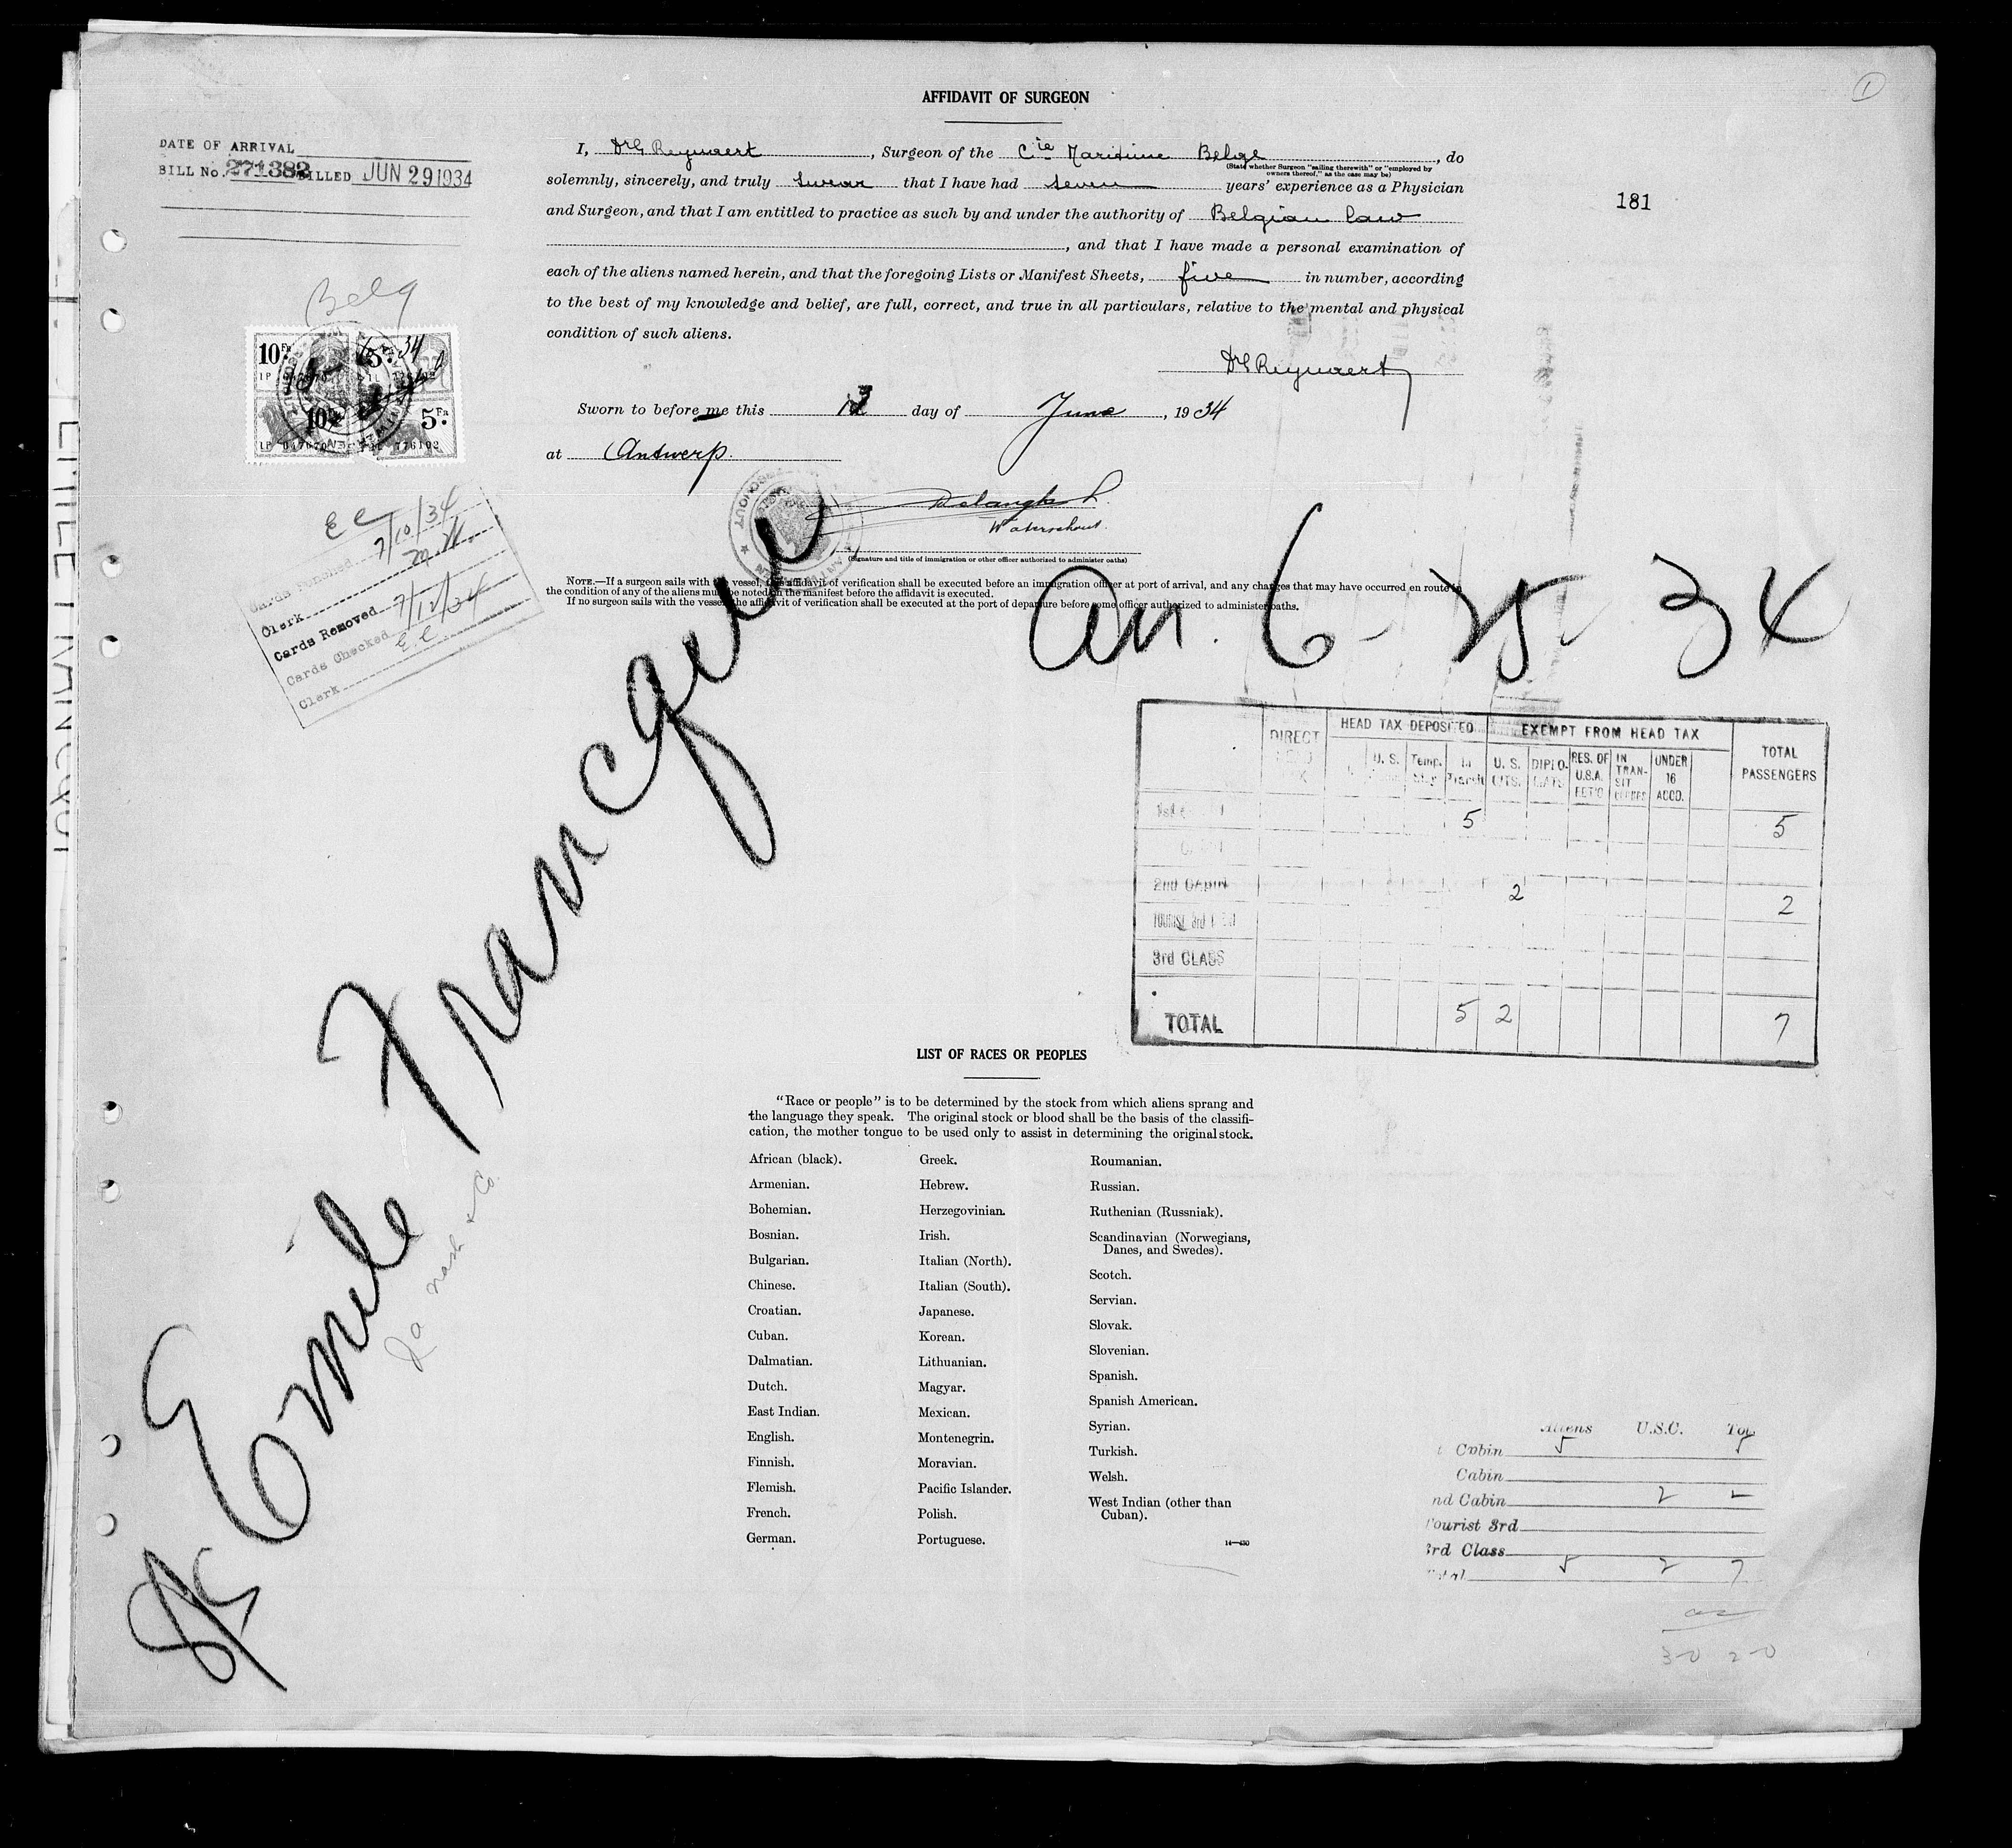 AFFIDAVIT OF SURGEON
1
DATE OF ARRIVAL
BILL No. 271382 BILLED JUN 29 1934
181
I, Dr G Reynaert, Surgeon of the Cie Maritime Belge, do
(State whether Surgeon "sailing therewith" or "employed by
owners thereof," as the case may be)
solemnly, sincerely, and truly swear that I have had seven years' experience as a Physician
and Surgeon, and that I am entitled to practice as such by and under the authority of Belgian law
, and that I have made a personal examination of
each of the aliens named herein, and that the foregoing Lists or Manifest Sheets, five in number, according
to the best of my knowledge and belief, are full, correct, and true in all particulars, relative to the mental and physical
condition of such aliens.
Dr G Reynaert
Sworn to before me this 13 day of June, 1934
at Antwerp.
Waterschout.
(Signature and title of immigration or other officer authorized to administer oaths)
NOTE.—If a surgeon sails with the vessel, this affidavit of verification shall be executed before an immigration officer at port of arrival, and any changes that may have occurred en route to
the condition of any of the aliens must be noted in the manifest before the affidavit is executed.
If no surgeon sails with the vessel the affidavit of verification shall be executed at the port of departure before some officer authorized to administer oaths.
Belg
10 Fr
5
10
5 Fr
E C
Cards Punched 7/10/34
Clerk
Cards Removed 7/12/34
Cards Checked E.C
Clerk
SS Emile Francqui
arr. 6-25-34
DIRECT
HEAD TAX DEPOSITED
EXEMPT FROM HEAD TAX
TOTAL PASSENGERS
U. S. Temp. In U. S. CITS. DIPLO- RES. OF U.S.A. RET'G IN TRAN- SIT UNDER 16 ACCD.
1st 5 5
2nd CABIN 2 2
TOURIST 3rd
3rd CLASS
TOTAL 5 2 7
LIST OF RACES OR PEOPLES
"Race or people" is to be determined by the stock from which aliens sprang and
the language they speak. The original stock or blood shall be the basis of the classifi-
cation, the mother tongue to be used only to assist in determining the original stock.
African (black).
Armenian.
Bohemian.
Bosnian.
Bulgarian.
Chinese.
Croatian.
Cuban.
Dalmatian.
Dutch.
East Indian.
English.
Finnish.
Flemish.
French.
German.
Greek.
Hebrew.
Herzegovinian.
Irish.
Italian (North).
Italian (South).
Japanese.
Korean.
Lithuanian.
Magyar.
Mexican.
Montenegrin.
Moravian.
Pacific Islander.
Polish.
Portuguese.
Roumanian.
Russian.
Ruthenian (Russniak).
Scandinavian (Norwegians,
Danes, and Swedes).
Scotch.
Servian.
Slovak.
Slovenian.
Spanish.
Spanish American.
Syrian.
Turkish.
Welsh.
West Indian (other than
Cuban).
14—430
Aliens U.S.C. Tot
Cabin 5 5
Cabin
nd Cabin 2 2
Tourist 3rd
3rd Class
Total 5 2 7